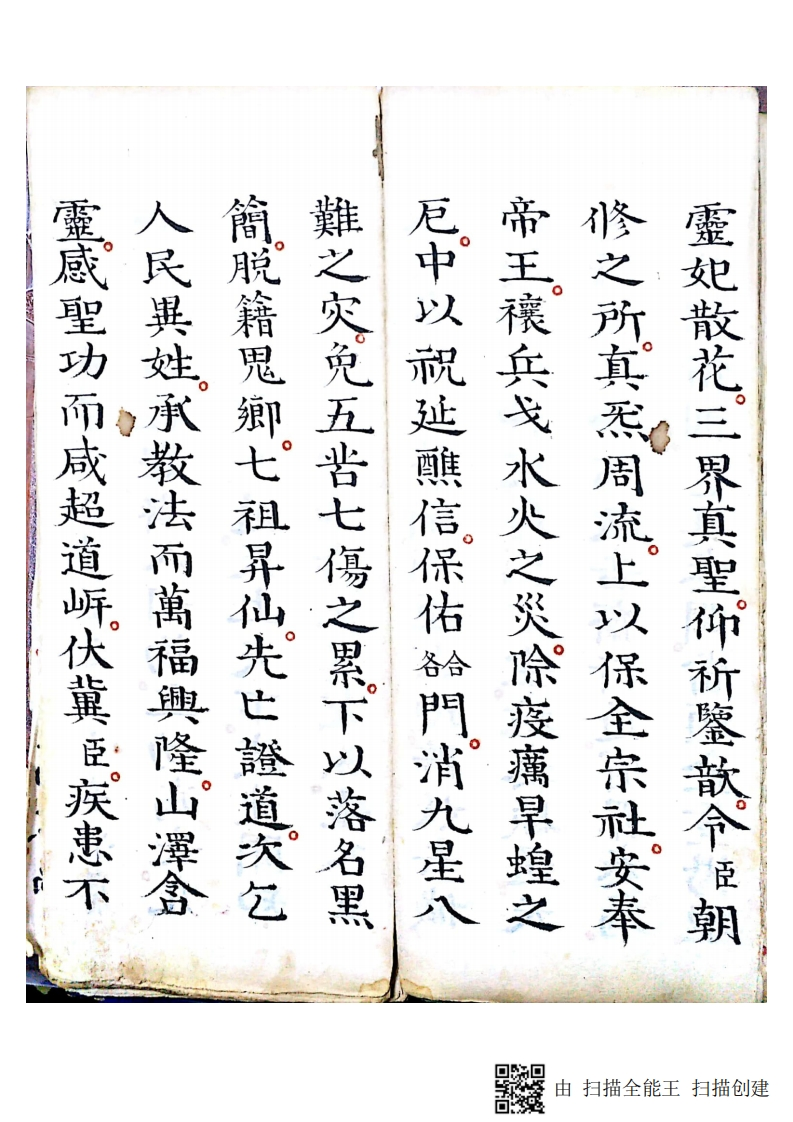 靈妃散花三界真聖仰祈鑒歆令臣朝
修之所真炁周流上以保全宗社安奉
帝王禳兵戈水火之災除疫癘旱蝗之
厄中以祝延醮信保佑各合門消九星八
難之灾免五苦七傷之累下以落名黑
簡脱籍鬼鄉七祖昇仙先亡證道次乞
人民異姓承教法而萬福興隆山澤含
靈感聖功而咸超道岍伏冀臣疾患不
由 扫描全能王 扫描创建